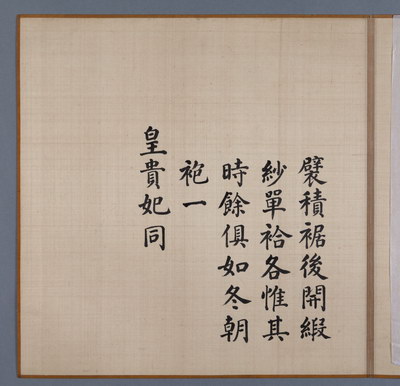 襞積裾後開緞
紗單袷各惟其
時餘俱如冬朝
袍一
皇貴妃同